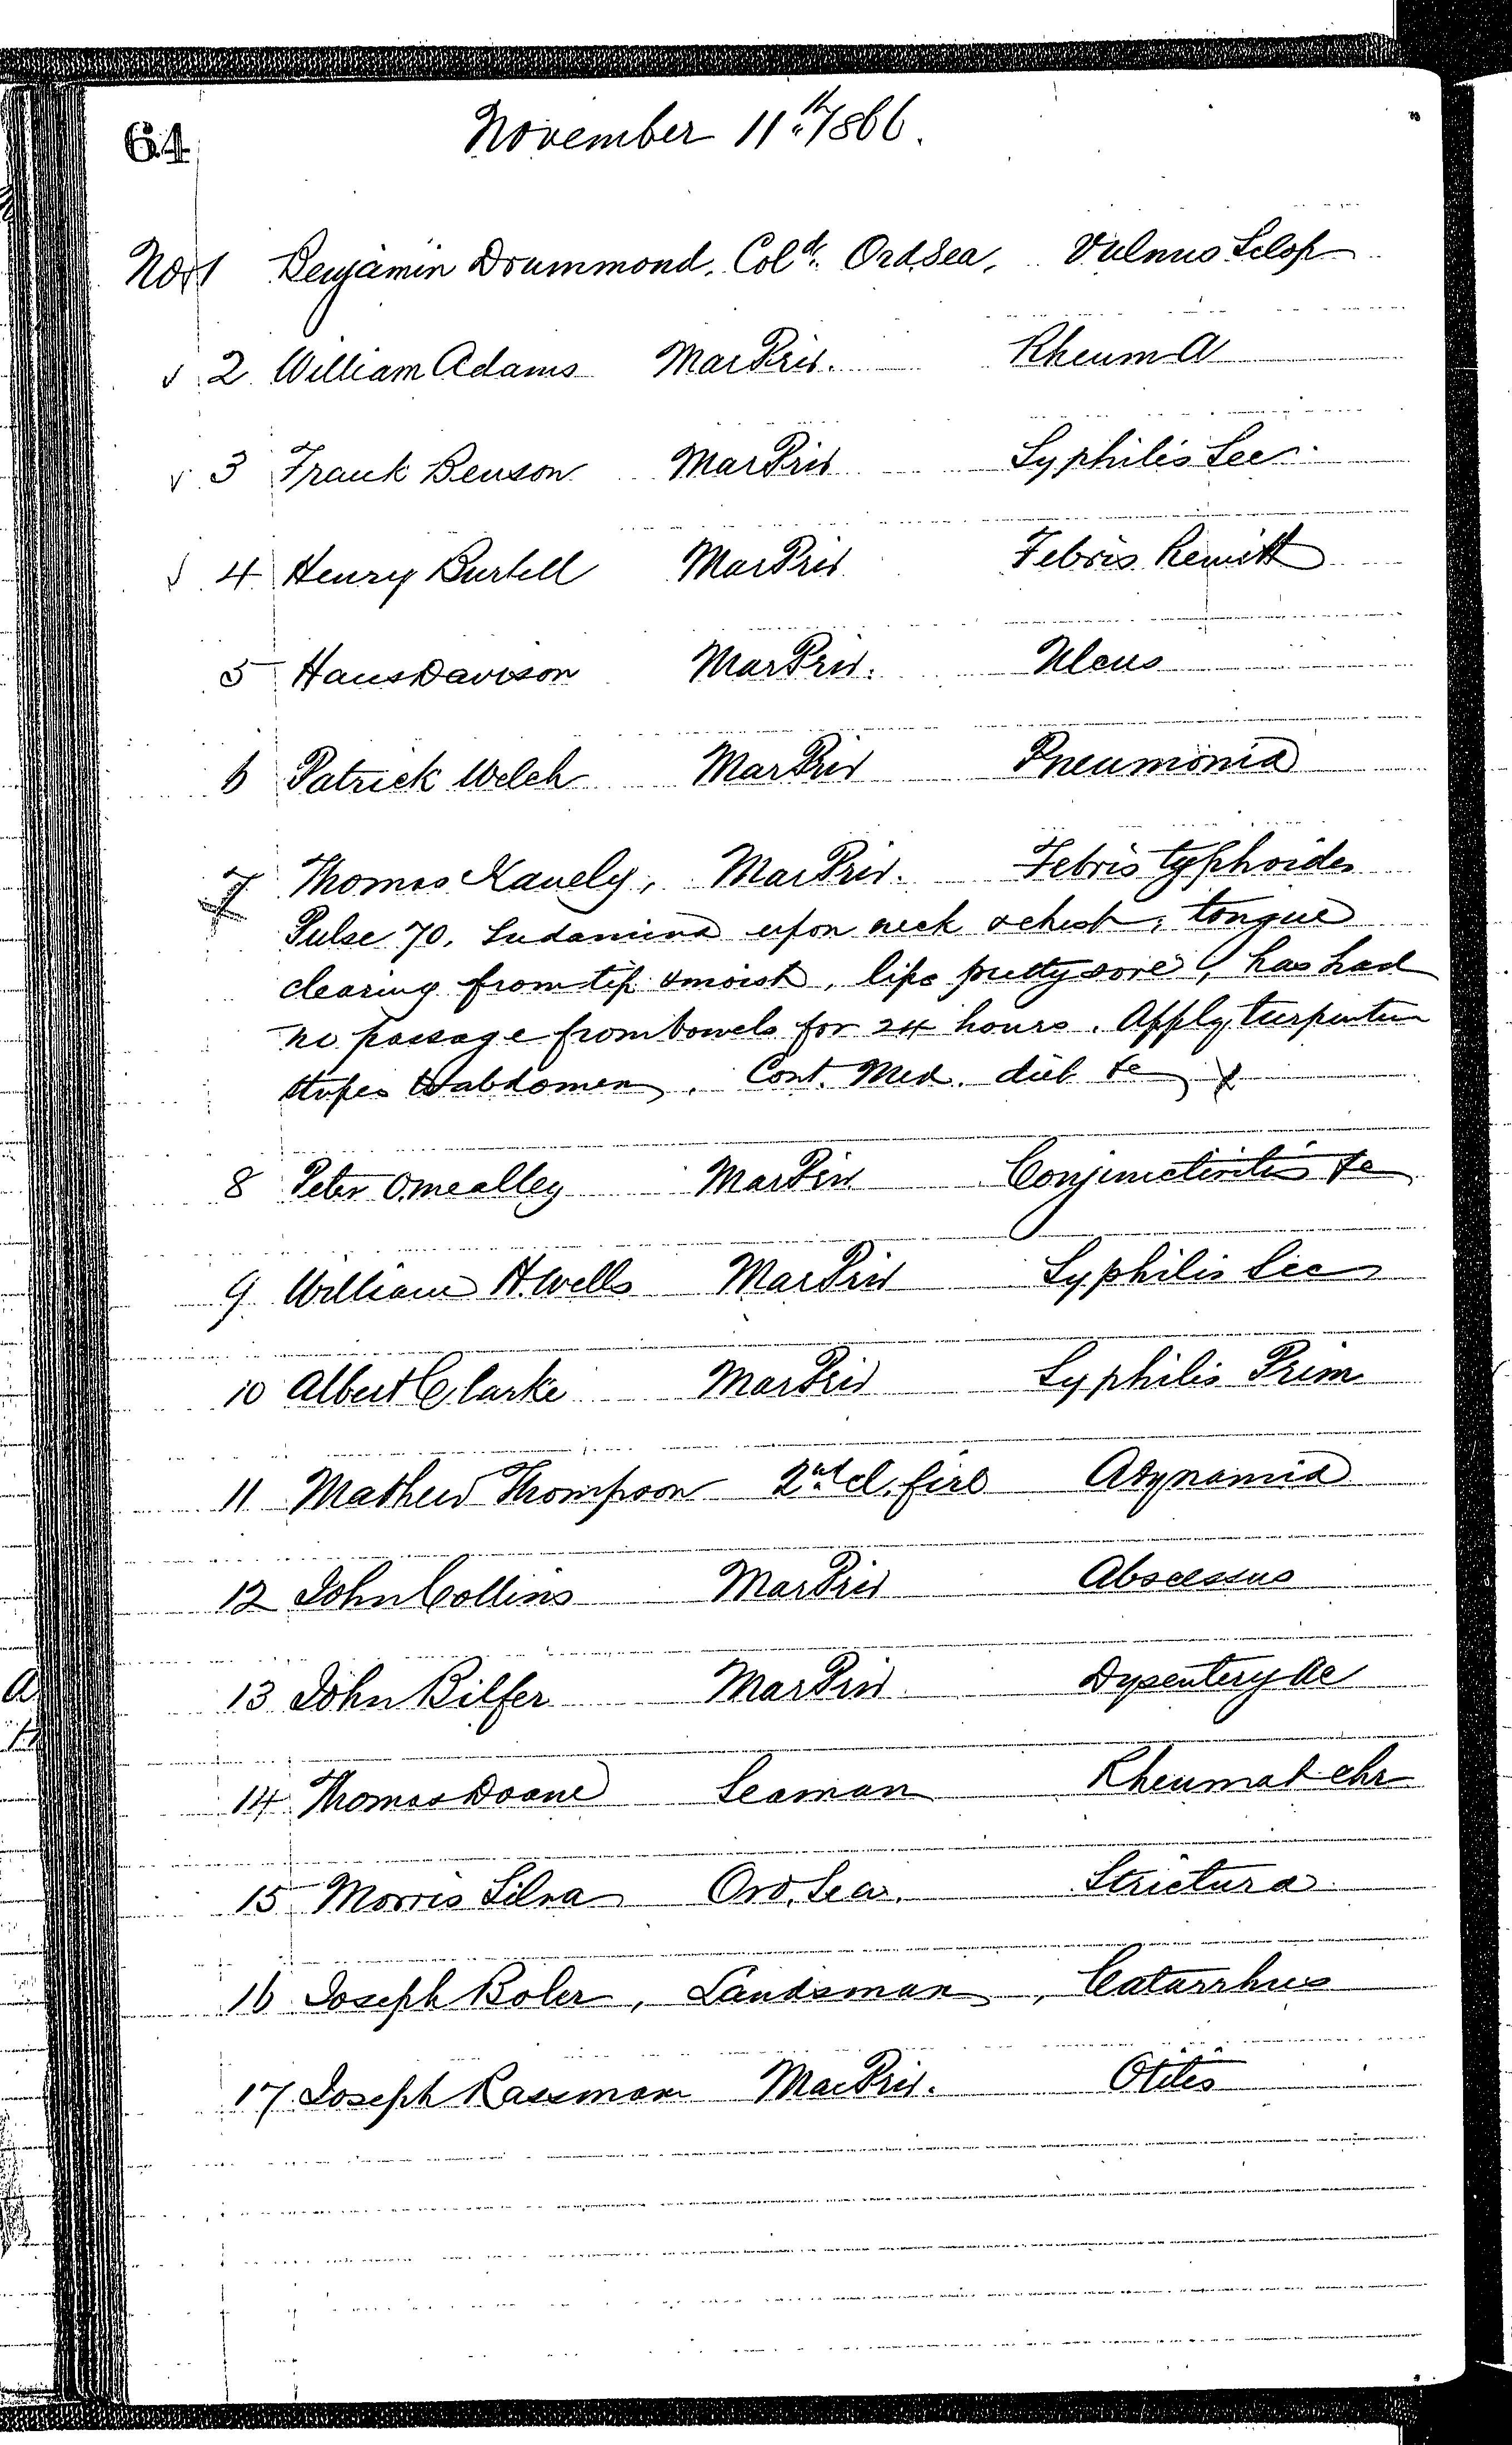 64
November 11th 1866.
No 1 Benjamin Drummond. Cold. Ord. Sea. Vulnus Sclop
✓ 2 William Adams Mar Priv. Rheum A
✓ 3 Frank Benson Mar Priv Syphilis Sec.
✓ 4 Henry Burtell Mar Priv Febris Remitt
5 Hans Davison Mar Priv. Ulcus
6 Patrick Welch Mar Priv Pneumonia
7 Thomas Kanely, Mar Priv. Febris typhoides
Pulse 70. Sudamina upon neck & chest, tongue
clearing from tip & moist, lips pretty sore, has had
no passage from bowels for 24 hours. Apply turpentine
stupes to abdomen. Cont. Med. diet &c X
8 Peter Omealley Mar Priv Conjunctivitis &c
9 William H. Wells Mar Priv Syphilis Sec
10 Albert C. Clarke Mar Priv Syphilis Prim
11 Mathew Thompson 2nd cl. fire Adynamia
12 John Collins Mar Priv Abscessus
13 John Bilfer Mar Priv Dysentery Ac
14 Thomas Doane Seaman Rheumat chr
15 Morris Silva Ord. Sea. Strictura
16 Joseph Boler, Landsman, Catarrhus
17 Joseph Rassman Mar Priv. Otitis